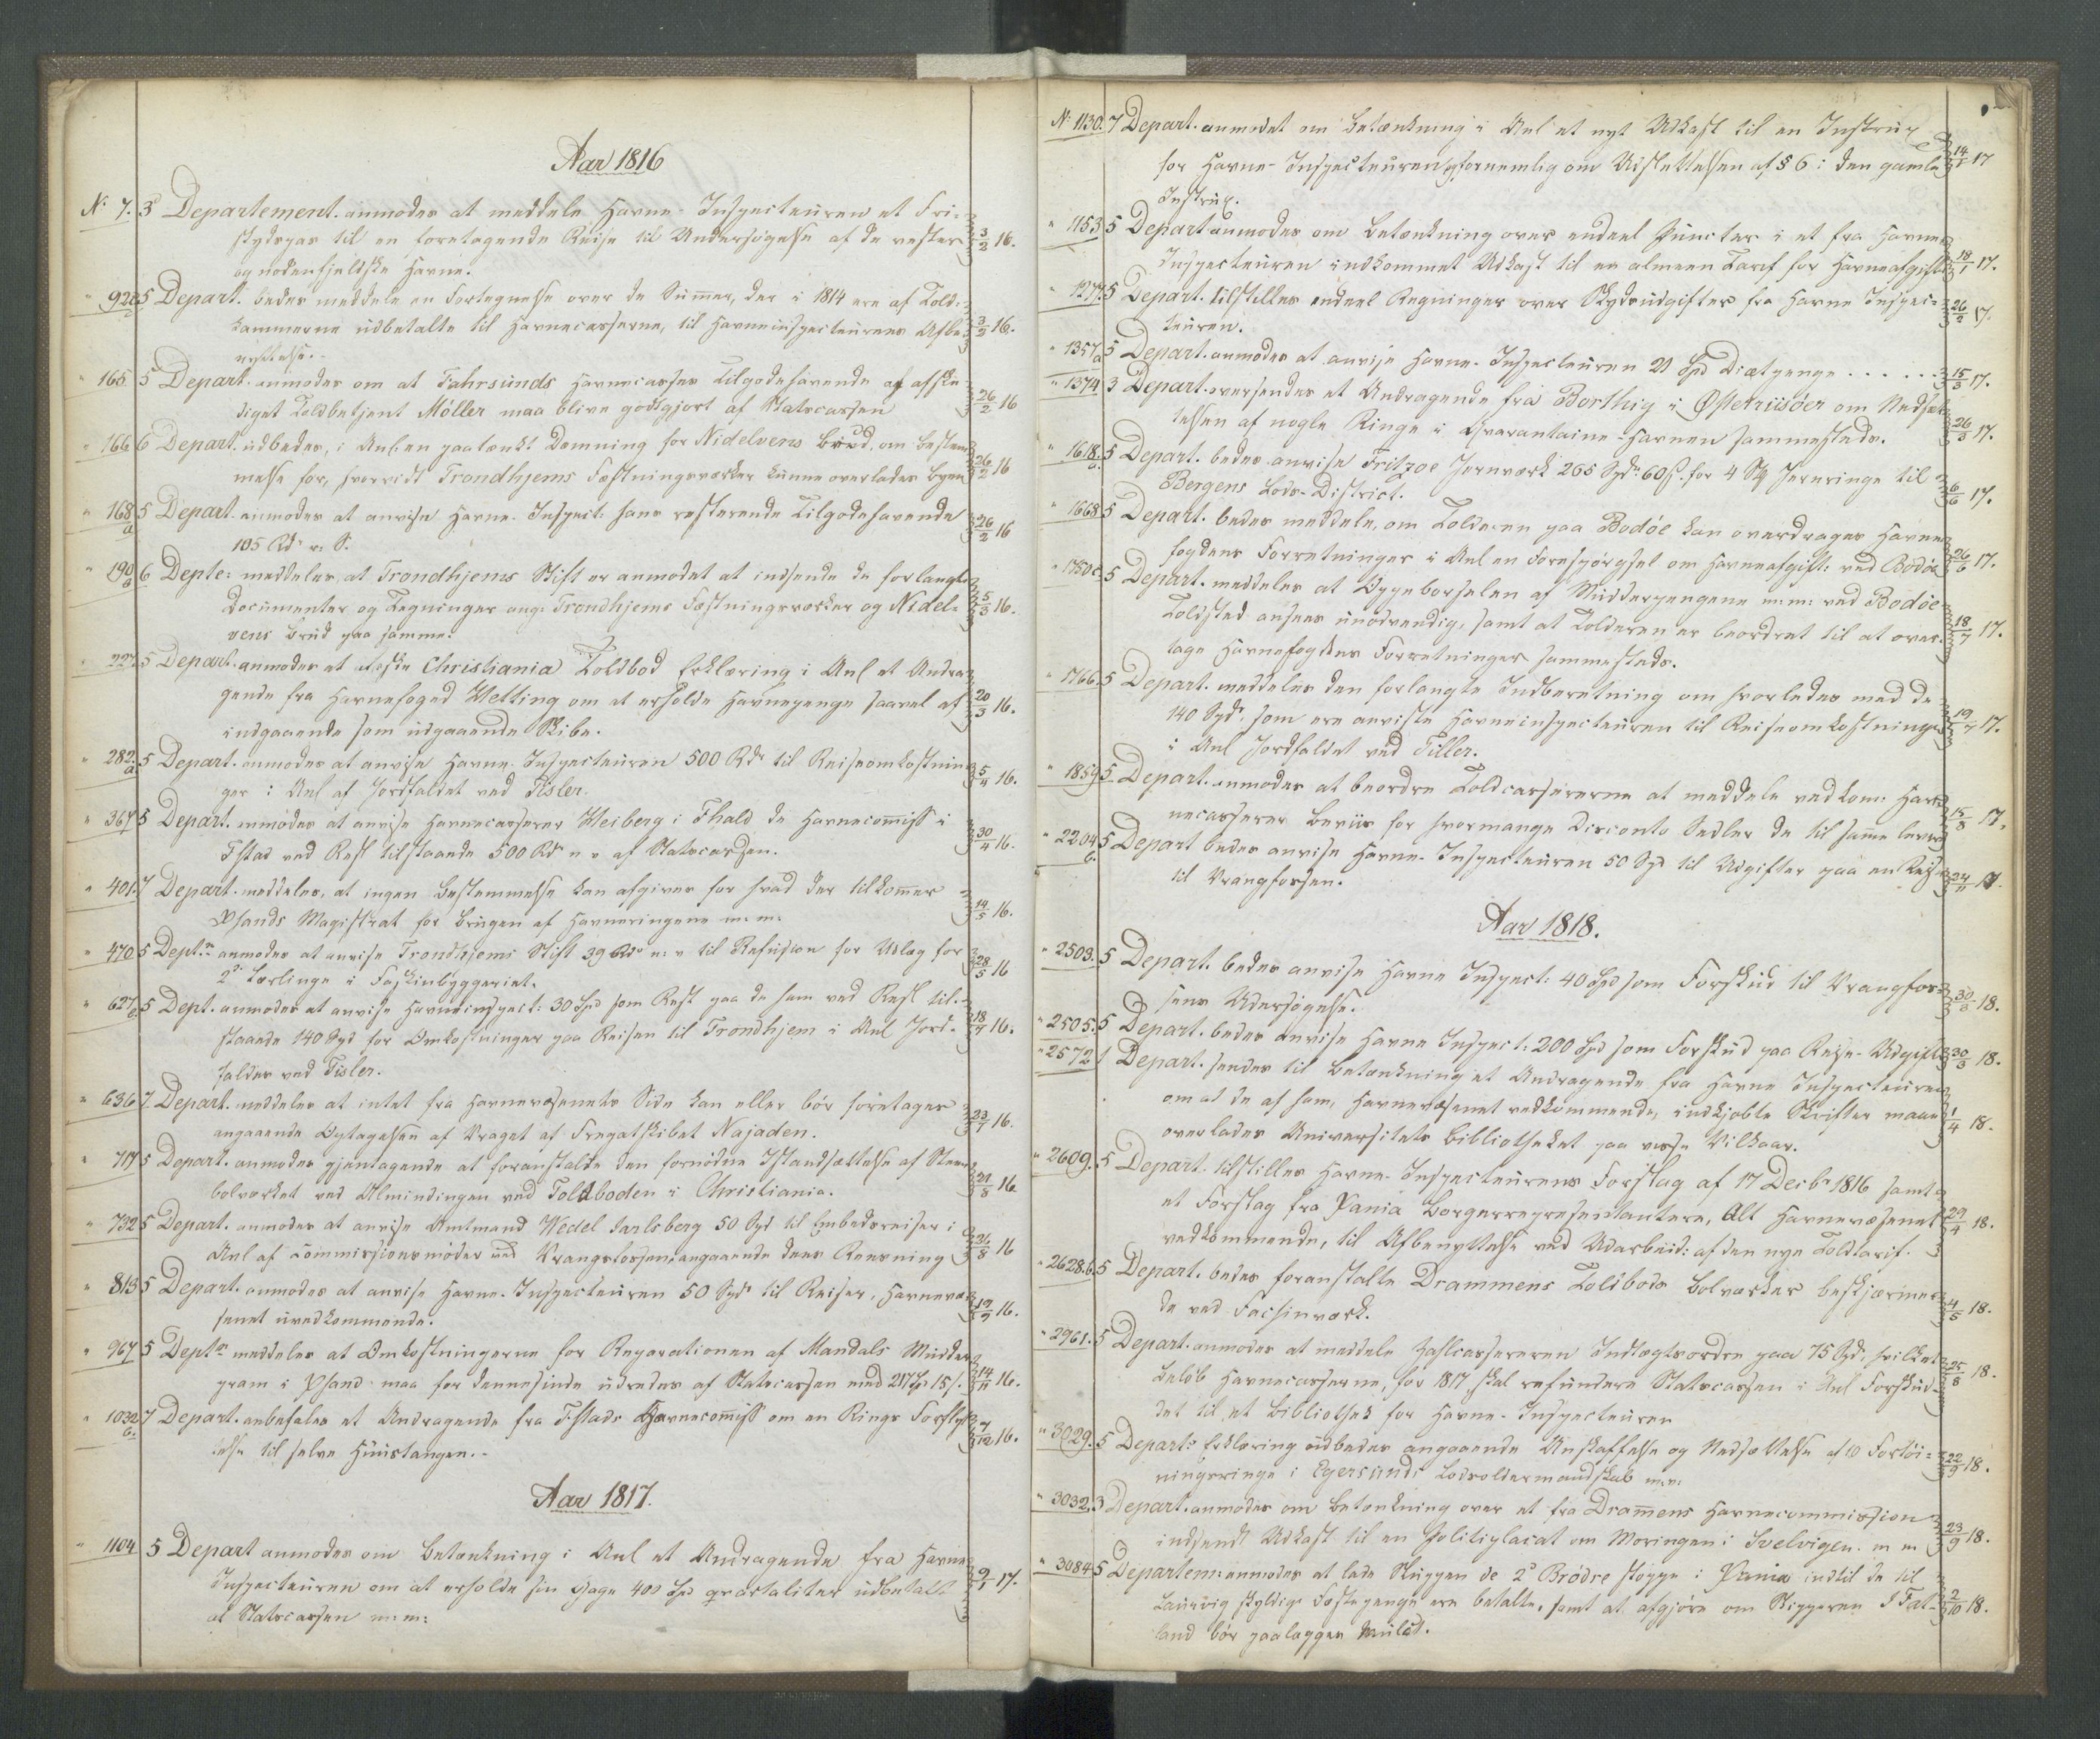 Aar 1816
No 7. 3 Departement. anmodes at meddele Havne-Inspecteuren et Fri-
skydspas til en foretagende Reise til Undersøgelse af de vester 3/2 16.
og nordenfjeldske Havne.
" 92 5 Depart. bedes meddele en Fortegnelse over de Summer, der i 1814 ere af Told-
kammerne udbetalte til Havnecasserne, til Havneinspecteurens Afbe- 3/2 16.
nyttelse.
" 165 5 Depart. anmodes om at Fahrsunds Havnecasses Tilgodehavende af afske-
diget Toldbetjent Möller maa blive godtgjort af Statscassen 26/2 16
" 166 6 Depart. udbedes, i Anl. en paatænkt Dæmning for Nidelvens Brud, om Bestem-
melse for, hvorvidt Trondhjems Fæstningsværker kunne overlades Byen 26/2 16
" 168 a 5 Depart. anmodes at anvise Havne-Inspect: hans resterende Tilgodehavende 26/2 16
105 Rd r: S.
" 190 a 6 Depte: meddeles, at Trondhjems Stift er anmodet at indsende de forlangte
Documenter og Tegninger ang: Trondhjems Fæstningsværker og Nidel- 5/3 16.
vens Brud paa samme.
" 227 5 Depart. anmodes at æske Christiania Toldbod Erklæring i Anl et Andra-
gende fra Havnefoged Wetting om at erholde Havnepenge saavel af 20/3 16.
indgaaende som udgaaende Skibe.
" 282. a 5 Depart. anmodes at anvise Havne-Inspecteuren 500 Rdr til Reiseomkostnin-
ger i Anl af Jordfaldet ved Tisler. 5/4 16.
" 367 5 Depart. anmodes at anvise Havnecasserer Weiberg i Fhald de Havnecom̅iss i
Fstad ved Resl tilstaaede 500 Rdr n v af Statscassen. 30/4 16.
" 401. 7 Depart. meddeles, at ingen Bestemmelse kan afgives for hvad der tilkom̅er
Xsands Magistrat for Brugen af Havneringene m: m: 14/5 16.
" 470 5 Deptet anmodes at anvise Trondhjems Stift 39 Rdr n: v til Refusion for Udlæg for
2de Lærlinge i Faskinbyggeriet. 28/5 16
" 627 e. 5 Dept. anmodes at anvise Havneinspect: 30 Spd som Rest paa de ham ved Resl til-
staaede 140 Spd for Omkostninger paa Reisen til Trondhjem i Anl Jord- 18/7 16.
faldet ved Tisler.
" 636 7 Depart. meddeles at intet fra Havnevæsenets Side kan eller bör foretages
angaaende Optagelsen af Vraget af Fregatskibet Najaden. 23/7 16.
" 717 5 Depart. anmodes gjentagende at foranstalte den fornödne Istandsættelse af Steen-
bolværket ved Almindingen ved Toldboden i Christiania. 21/8 16
" 732 5 Depart. anmodes at anvise Amtmand Wedel Jarlsberg 50 Spd til Embedsreiser i
Anl af Commissionsmöder ved Vrangfossen, angaaende dens Rensning 26/8 16
" 813 5 Depart. anmodes at anvise Havne-Inspecteuren 50 Spdr til Reiser, Havnevæ-
senet uvedkommende. 19/9 16.
" 967 5 Deptet meddeles at Omkostningerne for Reparationen af Mandals Mudder-
pram i Xsand maa for dennesinde udredes af Statscassen med 217 Sp 15 s. 14/11 16.
" 1032 b. 7 Depart. anbefales et Andragende fra F.stads Havnecom̅iss om en Rings Forflyt-
telse til selve Huustangen. 7/12 16.
Aar 1817.
" 1104 5 Depart anmodes om Betænkning i Anl et Andragende fra Havne
Inspecteuren om at erholde sin Gage 400 Spd qvartaliter udbetalt 9/1 17.
af Statscassen m: m:
No 1130. 7 Depart. anmodet om Betænkning i Anl et nyt Udkast til en Instrux
for Havne-Inspecteuren, fornemlig om Udslettelsen af § 6 i den gamle 14/1 17
Instrux.
" 1153 5 Depart anmodes om Betænkning over endeel Puncter i et fra Havne-
Inspecteuren indkommet Udkast til en almeen Tarif for Havneafgift 18/1 17.
" 1277. 5 Depart. tilstilles endeel Regninger over Skydsudgifter fra Havne Inspec-
teuren. 26/2 17.
" 1357 a 5 Depart. anmodes at anvise Havne-Inspecteuren 21 Spd Diætpenge . . . . . . 15/3 17.
" 1374 3 Depart. oversendes et Andragende fra Borthig i Østetriisöer om Nedsæt-
telsen af nogle Ringe i Qvarantaine-Havnen sammesteds. 26/3 17.
" 1618. a. 5 Depart. bedes anvise Fritzoe Jernværk 265 Spdr 60 s. for 4 Stk Jernringe til
Bergens Lods-District. 6/6 17.
" 1668 5 Depart. bedes meddele, om Tolderen paa Bodöe kan overdrages Havne-
fogdens Forretninger i Anl en Forespörgsel om Havneafgift: ved Bodöe 26/6 17.
" 1750 c. 5 Depart. meddeles at Oppeborselen af Mudderpengene m: m: ved Bodöe
Toldsted ansees unödvendig, samt at Tolderen er beordret til at over- 18/7 17.
tage Havnefogdens Forretninger sammesteds.
" 1766. 5 Depart. meddeles den forlangte Indberetning om hvorledes med de
140 Spdr som ere anviste Havneinspecteuren til Reiseomkostninger 19/7 17.
i Anl Jordfaldet ved Tiller.
" 1859 5 Depart. anmodes at beordre Toldcassererne at meddele vedkom: Hav-
necasserer Beviis for hvormange Disconto Sedler de til sam̅e levere 15/8 17.
" 2204 b. 5 Depart bedes anvise Havne-Inspecteuren 50 Spd til Udgifter paa en Reise
til Vrangfossen. 24/11 17.
Aar 1818.
" 2503. 5 Depart. bedes anvise Havne Inspect: 40 Spd som Forskud til Vrangfos-
sens Undersøgelse. 30/3 18.
" 2505. 5 Depart. bedes anvise Havne Inspect: 200 Spd som Forskud paa Reise-Udgifter 30/3 18.
" 2572 1 Depart. sendes til Betænkning et Andragende fra Havne Inspecteuren
om at de af ham, Havnevæsenet vedkommende, indkjøbte Skrifter maae 1/4 18.
overlades Universitets Bibliotheket paa visse Vilkaar.
" 2609. 5 Depart. tilstilles Havne-Inspecteurens Forslag af 17 Decbr 1816 samt
et Forslag fra Xania Borgerrepresentantere, Alt Havnevæsenet 29/4 18.
vedkommende, til Afbenyttelse ved Udarbeid: af den nye Toldtarif.
" 2628. b. 5 Depart. bedes foranstalte Drammens Toldbods Bolværker beskjærme-
de ved Facsinværk. 4/5 18.
" 2961. 5 Depart. anmodes at meddele Zahlcassereren Indtægtsordre paa 75 Spd, hvilket
Belöb Havnecasserne, for 1817, skal refundere Statscassen i Anl Forskud- 25/8 18.
det til et Bibliothek for Havne-Inspecteuren
" 3029. 5 Departs Erklæring udbedes angaaende Anskaffelse og Nedsættelse af 10 Fortöi-
ningsringe i Egersunds Lodsoldermandskab m: v: 22/9 18.
" 3032. 3 Depart. anmodes om Betænkning over et fra Dram̅ens Havnecommission
indsendt Udkast til en Politiplacat om Moringen i Svelvigen. m m 23/9 18.
" 3084 5 Departem: anmodes at lade Skuppen de 2de Brödre stoppe i Xania indtil de til
Laurvig skyldige Fæstepenge ere betalte, samt at afgjöre om Skipperen J Fat- 2/10 18.
land bör paalægges Mulct.